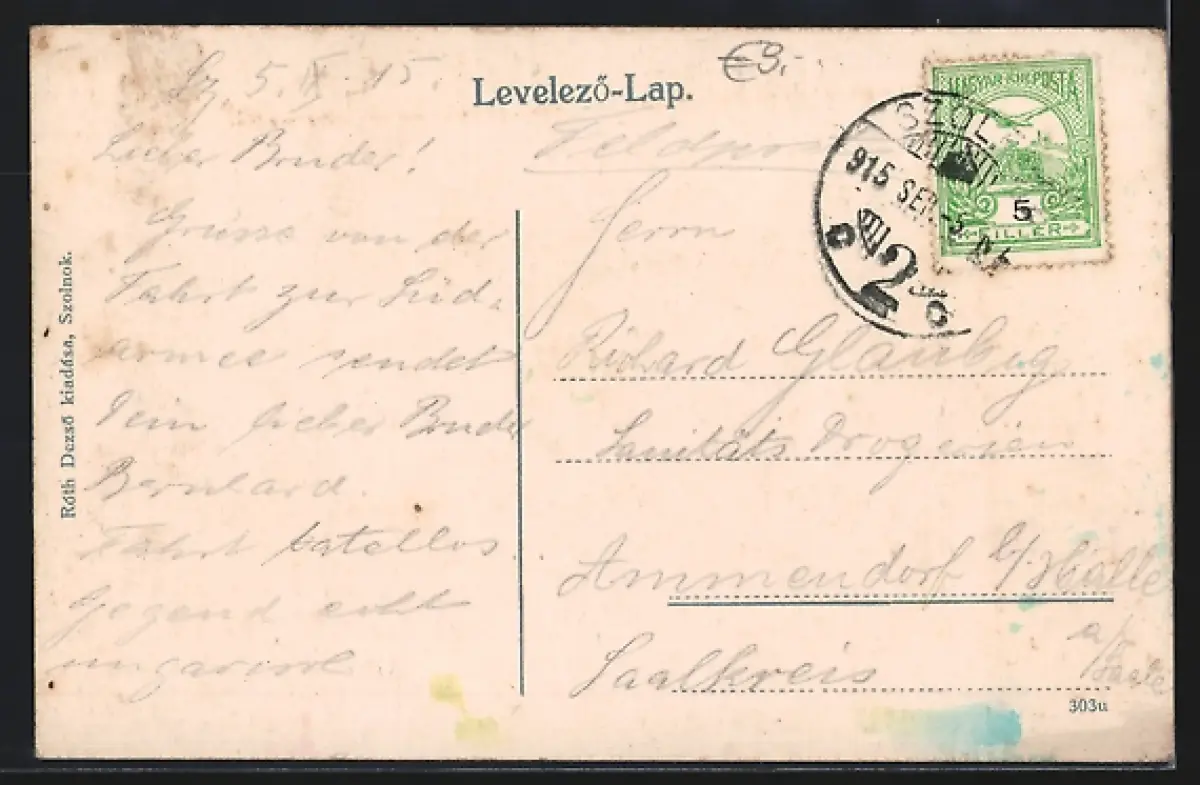 Sz, 5. IX. 15.
Lieber Bruder!
Grüsse von der
Fahrt zur Süd-
armee sendet
Dein lieber Bruder
Bernhard.
Fahrt tatellos
Gegend echt
ungarisch
Róth Dezső kiadása, Szolnok.
Levelező-Lap.
€9,-
Feldpost
Herrn
Richard Glaubig
Sanitäts Drogerien
Ammendorf b/Halle
a/Saale
Saalkreis
303u
MAGYAR KIR. POSTA
5
FILLÉR
SZOL
915 SEP. -5
2